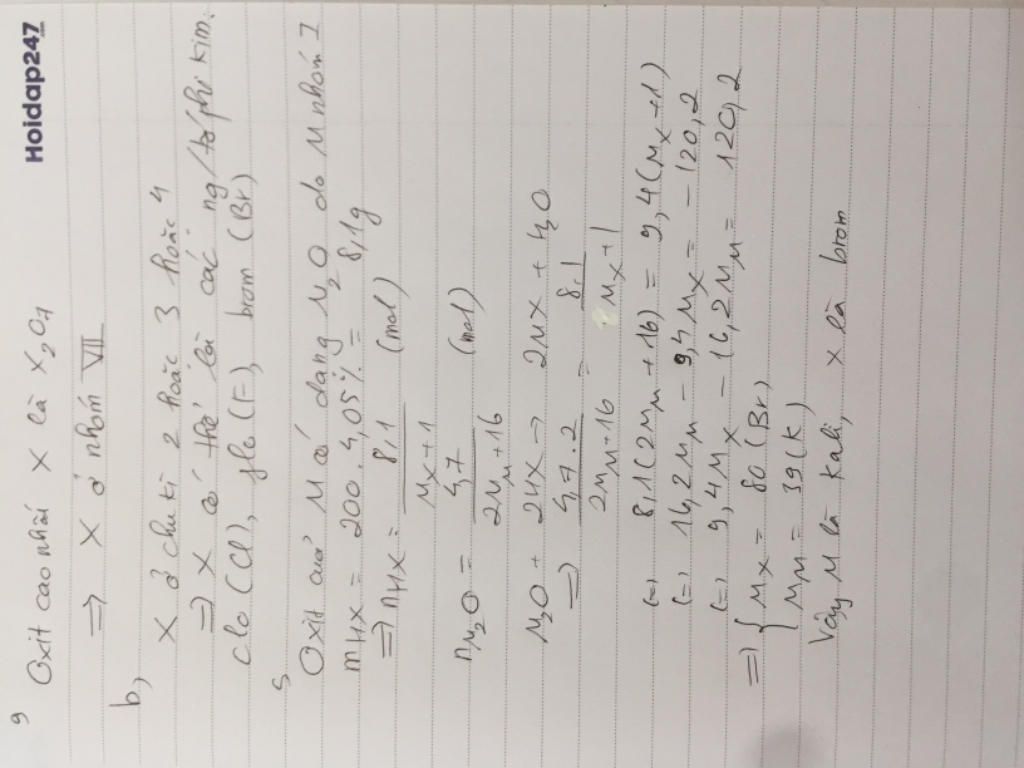 Hoidap247
a
Oxit cao nhất X là X2O7
=> X ở nhóm VII
b,
X ở chu kì 2 hoặc 3 hoặc 4
=> X có thể là các ng/tố phi kim.
clo (Cl), flo (F), brom (Br)
c
Oxit của M có dạng M2O do M nhóm I
mHX = 200. 4,05% = 8,1g
=> nHX = 8,1/MX+1 (mol)
nM2O = 4,7/2MM+16 (mol)
M2O + 2HX -> 2MX + H2O
=> 4,7.2/2MM+16 = 8,1/MX+1
(=) 8,1(2MM+16) = 9,4(MX+1)
(=) 16,2MM - 9,4MX = -120,2
(=) 9,4MX - 16,2MM = 120,2
=> { MX = 80 (Br)
MM = 39 (K)
Vậy M là Kali, X là brom